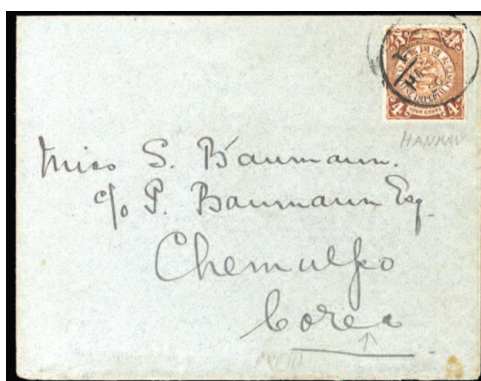 4
4
FOUR CENTS
HANKOW
Miss S. Baumann.
c/o P. Baumann Esq.
Chemulpo
Corea